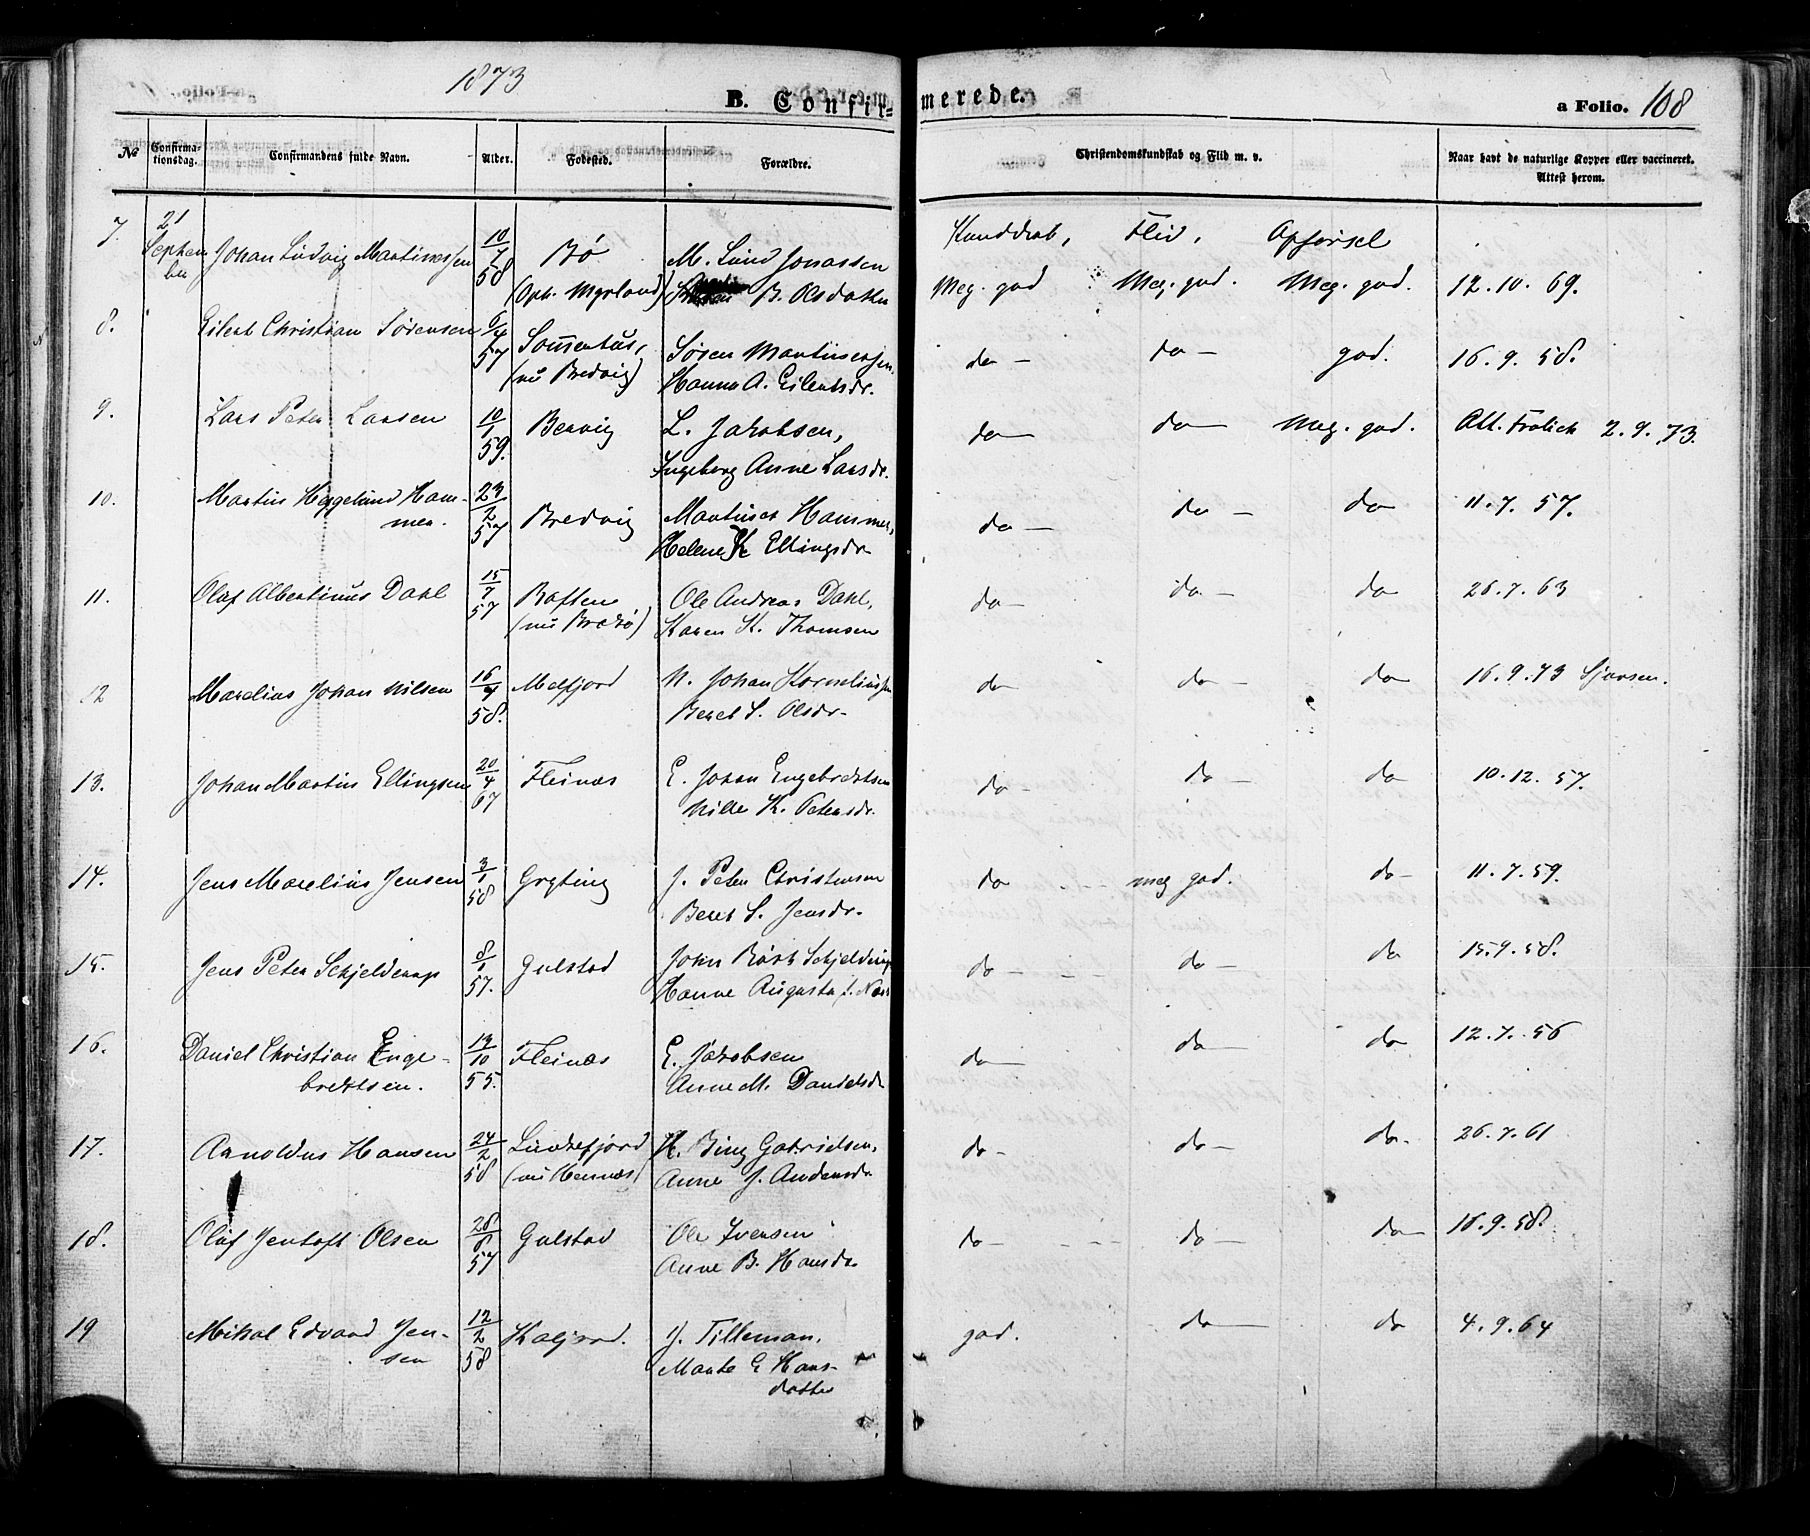 1873
B. Confirmerede.
a Folio. 108
No Confirmationsdag. Confirmandens fulde Navn. Alder. Fødested. Forældre. Christendomskundskab og Flid m. v. Naar havt de naturlige Kopper eller vaccineret. Attest herom.
Kundskab, Flid, Opførsel
7. 21 Septem Johan Ludvig Martinessen 10/7 Bø M. Lund Jonassen
ber 58 (Oph. Myrland) B. Olsdatter Meg. god Meg. god. Meg. god. 12.10.69.
8. Eilert Christian Sørensen 57 (nu Bredvig) Søren Martinessen do — do — god. 16.9.58.
Hanna A. Eilertsdr.
9. Lars Peter Larsen 10/1 Bervig L. Jakobsen, do — do — Meg. god. Att. Frolich 2.9.73.
59. Ingeborg Anne Larsdr.
10. Martin Heggelund Ham- 23/2 Bredvig Martines Hammer, do — do — do 11.7.57.
mer. 57 Helene Ellingsdr
11. Olaf Albertinus Dahl 15/7 Ole Andreas Dahl, do — do — do 26.7.63
57 Karen K. Thomsen
12 Marelius Johan Nilsen 16/ Melfjord N. Johan Korneliussen do do — do 16.9.73 Sjursen.
58. Beret S. Olsdr
13. Johan Martin Ellingsen 20/4 Fleinæs E. Johan Engebrektsen do — do — do 10.12.57.
67 Nille K. Petersdr.
14. Jens Marelius Jensen 3/1 Grytting J. Peter Christensen do meg god. do — 11.7.59.
58 Beret S. Jensdr.
15. Jens Peter Schjelderup 8/1 Gulstad John Schjelderup do — do — do 15.9.58.
57. Hanne Augusta f.
16. Daniel Christian Enge- 13/10 Fleinæs E. Jakobsen do — do — do 12.7.56
brektsen. 55. Anne M. Danielsdr
17. Arnoldus Hansen 24/2 H. Bing Gabrielsen, do — do — do. 26.7.61
58 (nu Hennæs) Anne J. Andersdr
18. Olaf Jentoft Olsen 28/8 Gulstad Ole Iversen do — do — do 16.9.58.
57 Anne B. Hansdr.
19 Mikal Edvard Jen- 12/2 Kaljord. J. Tilleman, god. do — do 4.9.64
sen 58 Marte E Hans-
datter